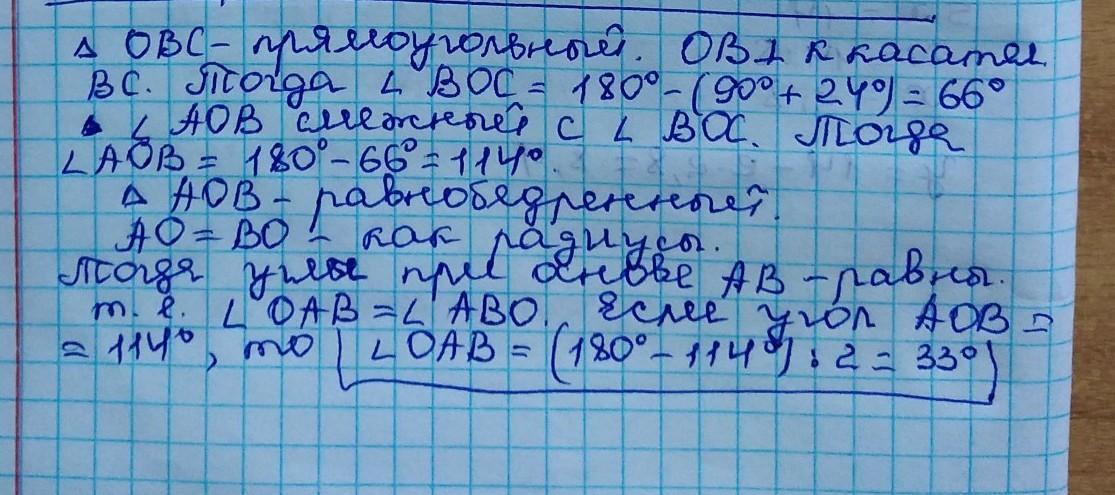 Δ OBC - прямоугольный. OB⊥ к касател.
BC. Тогда ∠ BOC = 180° - (90° + 24°) = 66°
∠ AOB смежный с ∠ BOC. Тогда
∠AOB = 180° - 66° = 114°.
Δ AOB - равнобедренный.
AO = BO - как радиусы.
Тогда углы при основе AB - равны.
т. е. ∠ OAB = ∠ ABO. Если угол AOB =
= 114°, то ∠OAB = (180° - 114°) : 2 = 33°